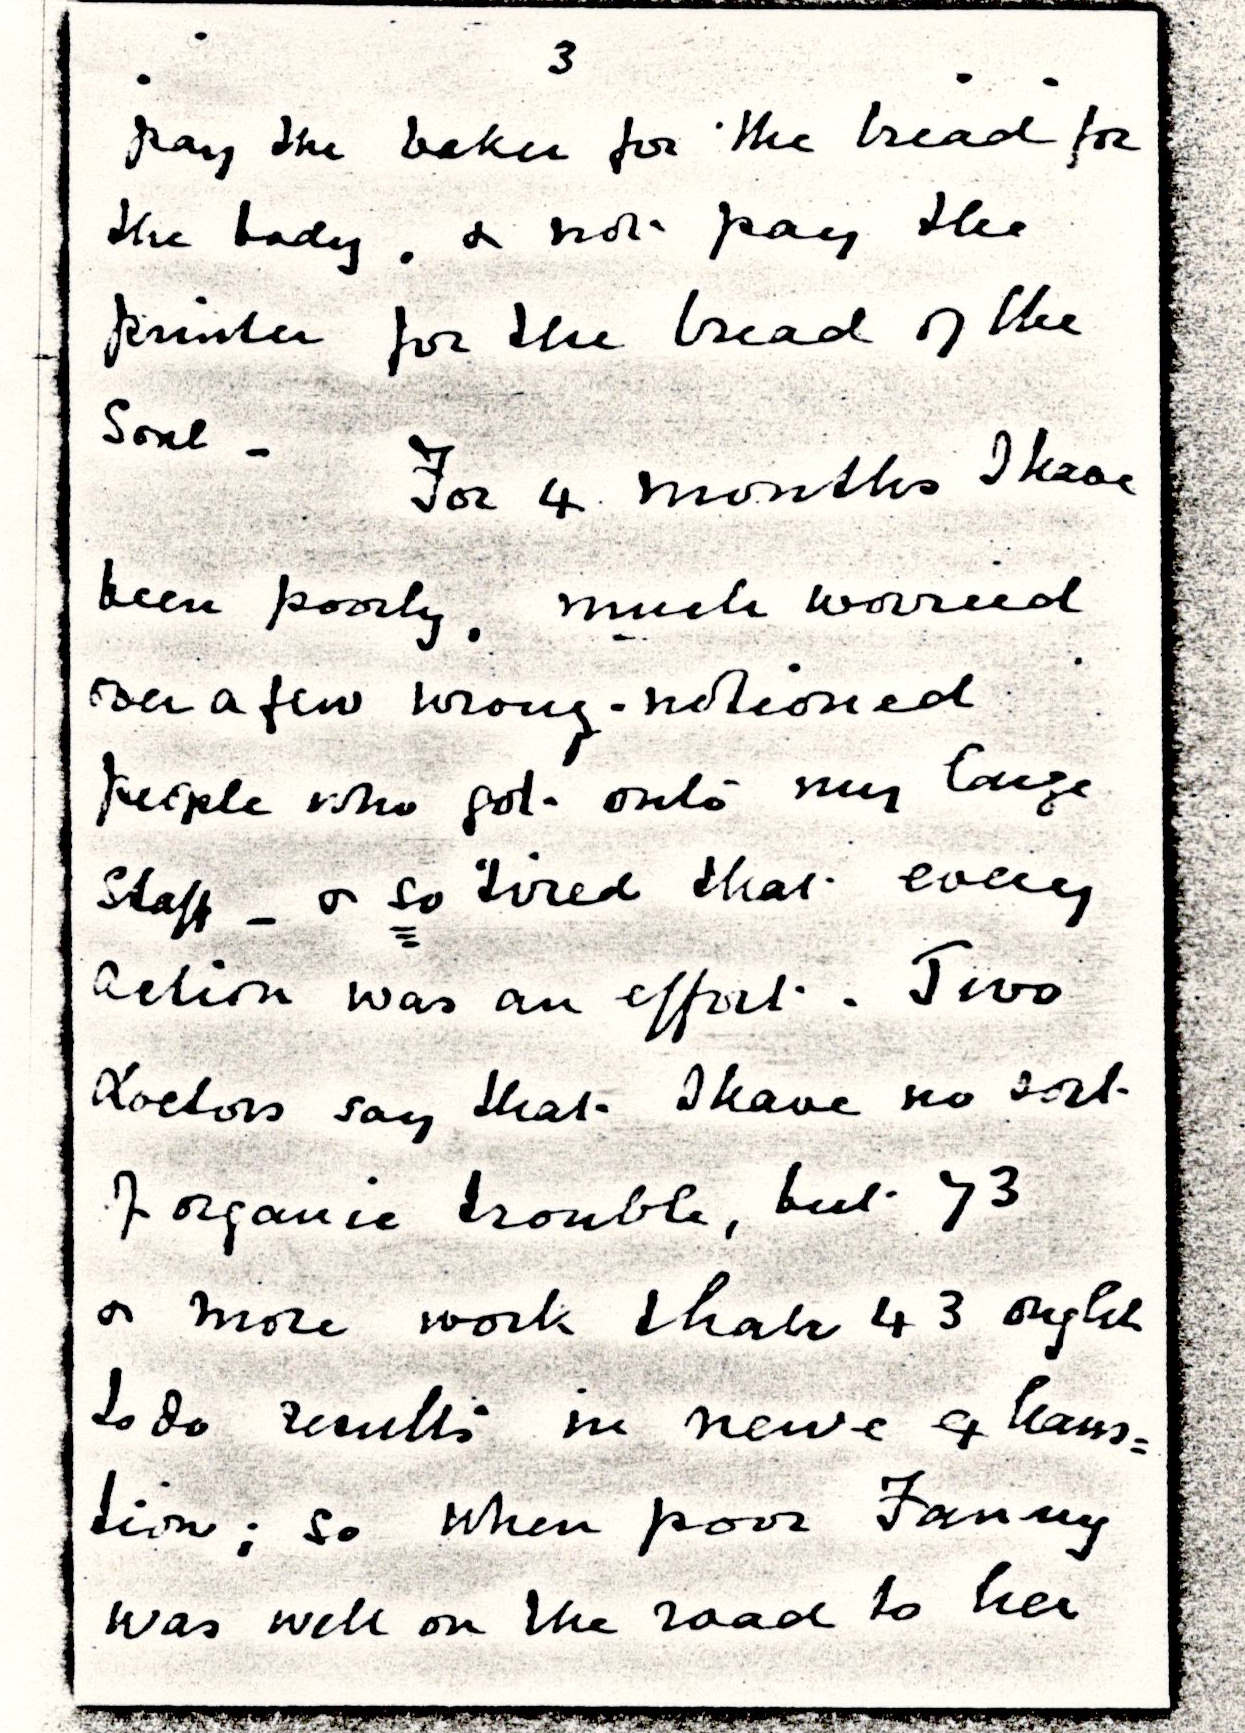 3
pay the baker for the bread for
the body, & not pay the
printer for the bread of the
Soul - For 4 months I have
been poorly, much worried
over a few wrong-notioned
people who got onto my large
Staff - & so tired that every
action was an effort. Two
doctors say that I have no sort
of organic trouble, but 73
& more work than 43 ought
to do results in nerve exhaus=
tion; so when poor Fanny
was well on the road to her